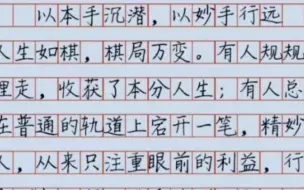 以本手沉潜，以妙手行远
人生如棋，棋局万变。有人规规
里走，收获了本分人生；有人总
在普通的轨道上宕开一笔，精妙
人，从来只注重眼前的利益，行